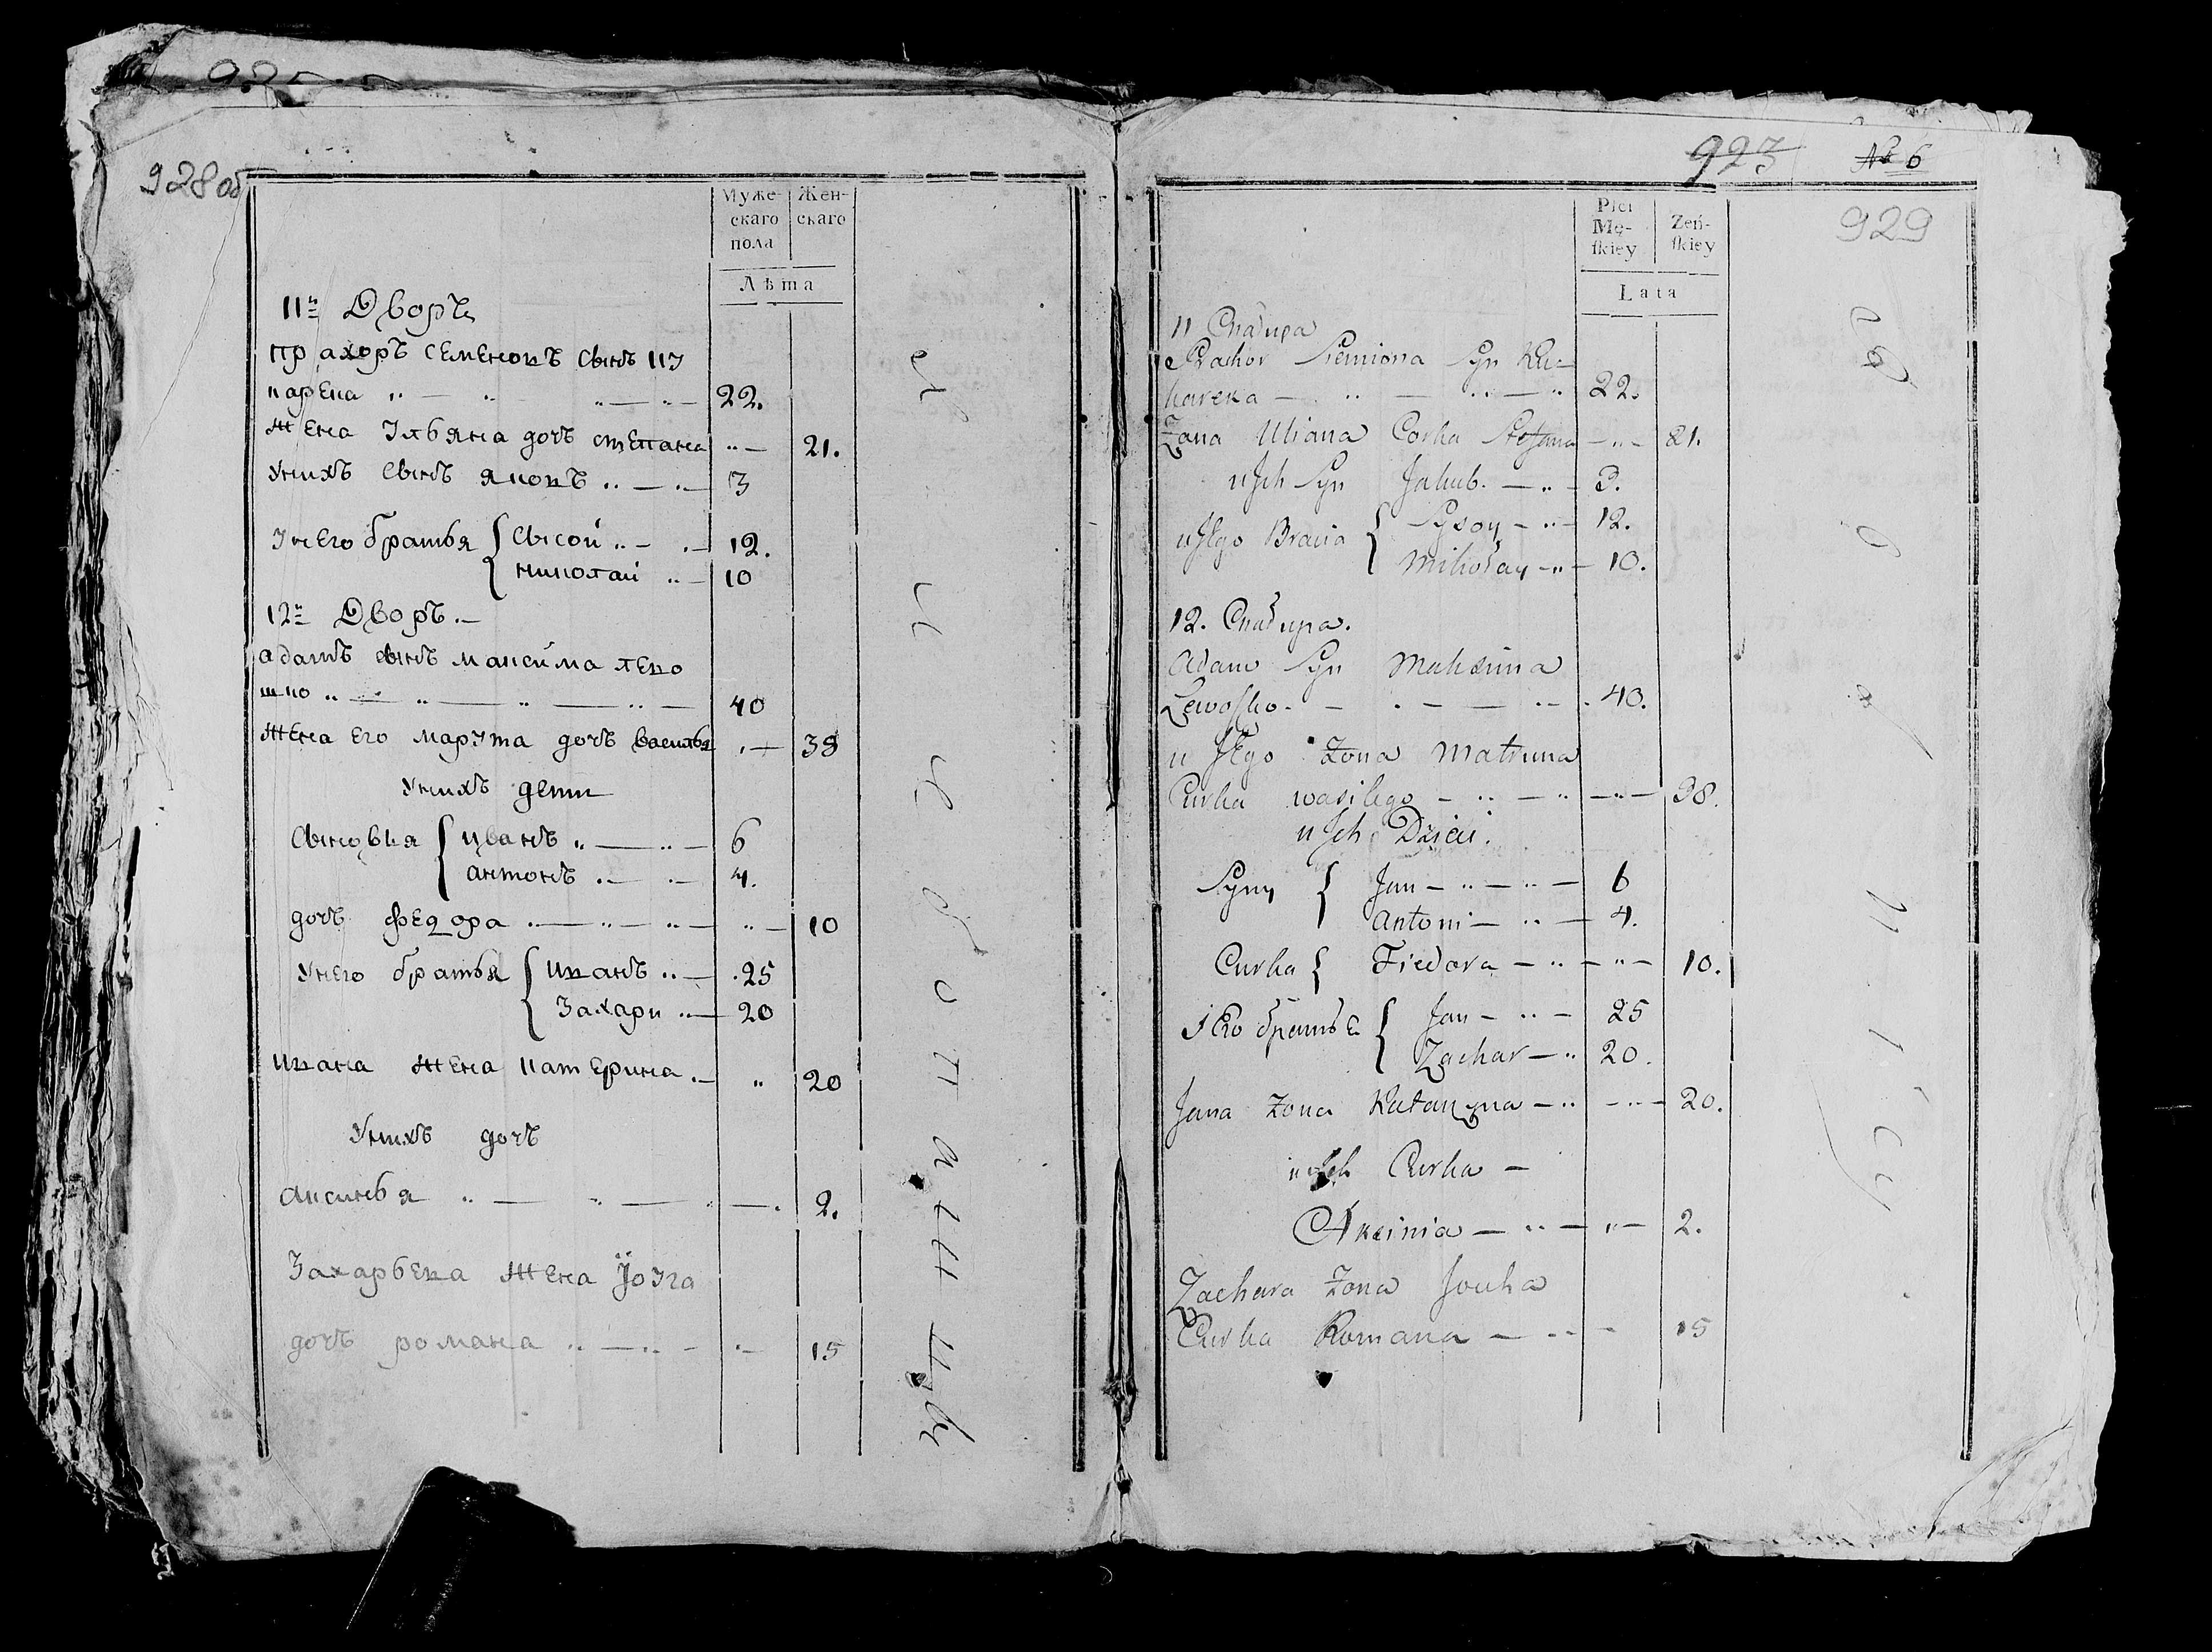 928 об
Муже-
скаго
пола
Жен-
скаго
Лѣта
11й Дворъ
прахоръ семеновъ сынъ ку
карека 22.
жена Ульяна дочь степана 21.
Унихъ сынъ яковъ 3
Унего братья { сысой 12.
николай 10
12й Дворъ
адамъ сынъ максима лево
шко 40
жена его марута дочь василья 38
Унихъ дети
сыновья { иванъ 6
антонъ 4.
дочь федора 10
Унего братья { иванъ 25
Захари 20
ивана жена катерина 20
Унихъ дочь
аксинья 2.
Захарьева жена Юзга
дочь романа 15
923
№ 6
929
Płci
Mę-
ſkiey
Zeń-
ſkiey
Lata
11 Chałupa
Prachor Siemiona Syn Ku-
kareka 22.
Żona Uliana Corka Stefana 21.
u Jch Syn Jakub. 3.
u Jego Bracia { Sysoy 12.
Mikołay 10.
12. Chałupa.
Adam Syn Maksima
Lewoſko 40.
u Jego Żona Matruna
Curka wasilego 38.
u Jch Dzieci.
Syny { Jan 6
Antoni 4.
Curka { Fiedora 10.
Его братье { Jan 25
Zachar 20.
Jana Żona Katarzyna 20.
u Jch Curka
Aksinia 2.
Zachara Żona Jouha
Curka Romana 15